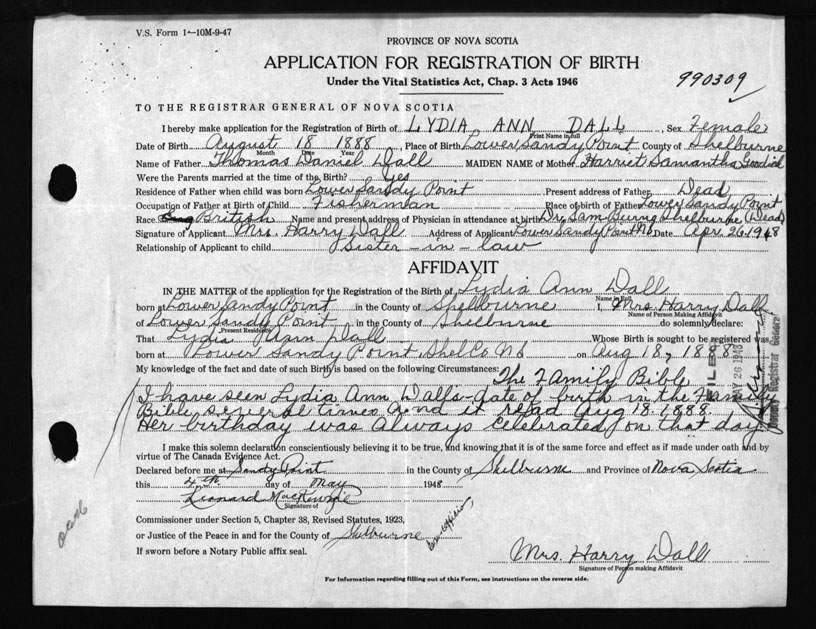 V.S. Form 1—10M-9-47
PROVINCE OF NOVA SCOTIA
APPLICATION FOR REGISTRATION OF BIRTH
Under the Vital Statistics Act, Chap. 3 Acts 1946
990309
TO THE REGISTRAR GENERAL OF NOVA SCOTIA
I hereby make application for the Registration of Birth of LYDIA ANN DALL, Sex Female
Print Name in full
Date of Birth August 18 1888, Place of Birth Lower Sandy Point County of Shelburne
Month Date Year
Name of Father Thomas Daniel Dall MAIDEN NAME of Mother Harriet Samantha Goodick
Were the Parents married at time of the Birth? Yes
Residence of Father when child was born Lower Sandy Point Present address of Father Dead
Occupation of Father at Birth of Child Fisherman Place of birth of Father Lower Sandy Point
Race British Name and present address of Physician in attendance at birth Dr. Sam Burns Shelburne (Dead)
Signature of Applicant Mrs. Harry Dall Address of Applicant Lower Sandy Point NS Date Apr 26, 1948
Relationship of Applicant to child Sister-in-law
AFFIDAVIT
IN THE MATTER of the application for the Registration of the Birth of Lydia Ann Dall
Name in Full
born at Lower Sandy Point in the County of Shelburne I, Mrs. Harry Dall
Name of Person Making Affidavit
of Lower Sandy Point in the County of Shelburne do solemnly declare:
Present Residence
That Lydia Ann Dall Whose Birth is sought to be registered was
born at Lower Sandy Point Shel Co NS on Aug 18, 1888
My knowledge of the fact and date of such Birth is based on the following Circumstances:
The Family Bible
I have seen Lydia Ann Dall's date of birth in the Family
Bible several times and it read Aug 18 1888.
Her birthday was always celebrated on that day.
FILED
MAY 26 1948
Deputy Registrar General
I make this solemn declaration conscientiously believing it to be true, and knowing that it is of the same force and effect as if made under oath and by
virtue of The Canada Evidence Act.
Declared before me at Sandy Point in the County of Shelburne and Province of Nova Scotia
this 4th day of May 1948
Leonard MacKenzie
Signature of
Commissioner under Section 5, Chapter 38, Revised Statutes, 1923,
or Justice of the Peace in and for the County of Shelburne
Ex-officio
If sworn before a Notary Public affix seal.
Mrs. Harry Dall
Signature of Person making Affidavit
For Information regarding filling out of this Form, see instructions on the reverse side.